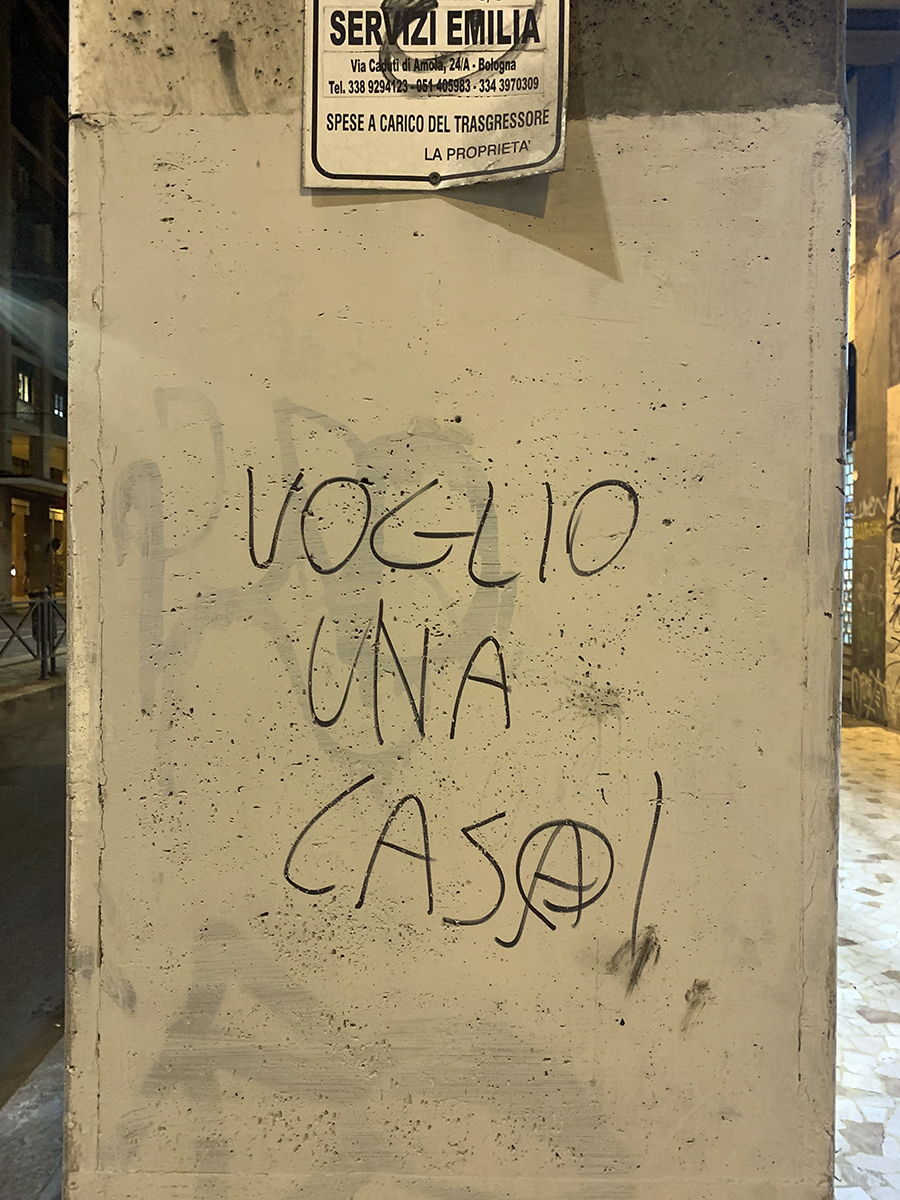 SERVIZI EMILIA
Via Caduti di Amola, 24/A - Bologna
Tel. 338 9294123 - 051 405983 - 334 3970309
SPESE A CARICO DEL TRASGRESSORE
LA PROPRIETA'
VOGLIO
UNA
CASA!